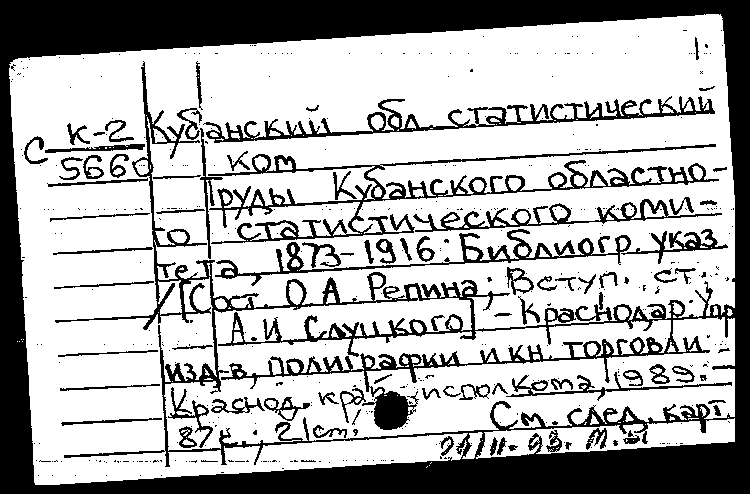 1.
С К-2 Кубанский обл. статистический
5660 ком.
Труды Кубанского областно-
го статистического коми-
тета, 1873-1916: Библиогр. указ
/ [Сост. О.А. Репина; Вступ. ст.
А.И. Слуцкого] - Краснодар: Упр.
изд-в, полиграфии и кн. торговли
Краснод. край исполкома, 1989. -
87 с.; 21 см.
См. след. карт.